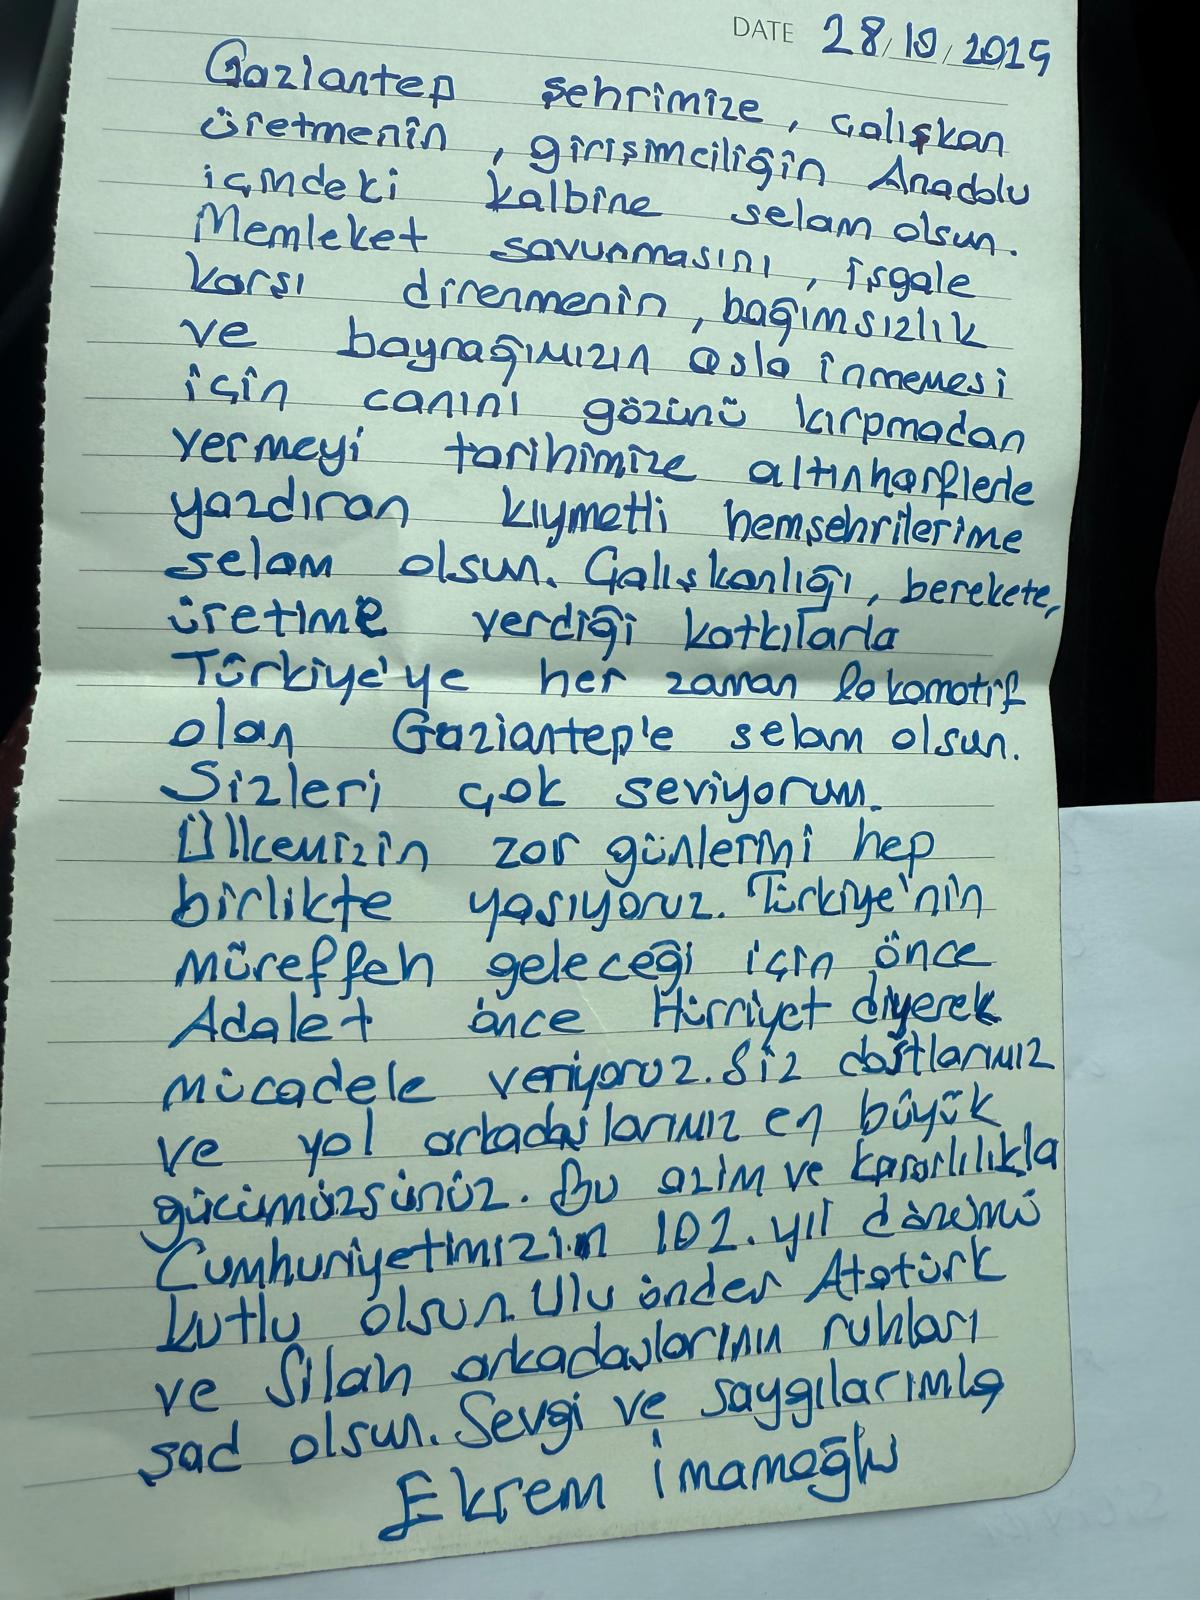 DATE 28/10/2025
Gaziantep şehrimize, çalışkan
üretmenin, girişimciliğin Anadolu
içindeki kalbine selam olsun.
Memleket savunmasını, işgale
karşı direnmenin, bağımsızlık
ve bayrağımızın asla inmemesi
için canını gözünü kırpmadan
vermeyi tarihimize altın harflerle
yazdıran kıymetli hemşehrilerime
selam olsun. Çalışkanlığı, berekete,
üretime verdiği katkılarla
Türkiye'ye her zaman lokomotif
olan Gaziantep'e selam olsun.
Sizleri çok seviyorum.
Ülkemizin zor günlerini hep
birlikte yaşıyoruz. Türkiye'nin
müreffeh geleceği için önce
Adalet önce Hürriyet diyerek
mücadele veriyoruz. Siz dostlarımız
ve yol arkadaşlarımız en büyük
gücümüzsünüz. Bu azim ve kararlılıkla
Cumhuriyetimizin 102. yıl dönümü
kutlu olsun. Ulu önder Atatürk
ve Silah arkadaşlarının ruhları
şad olsun. Sevgi ve saygılarımla
Ekrem İmamoğlu